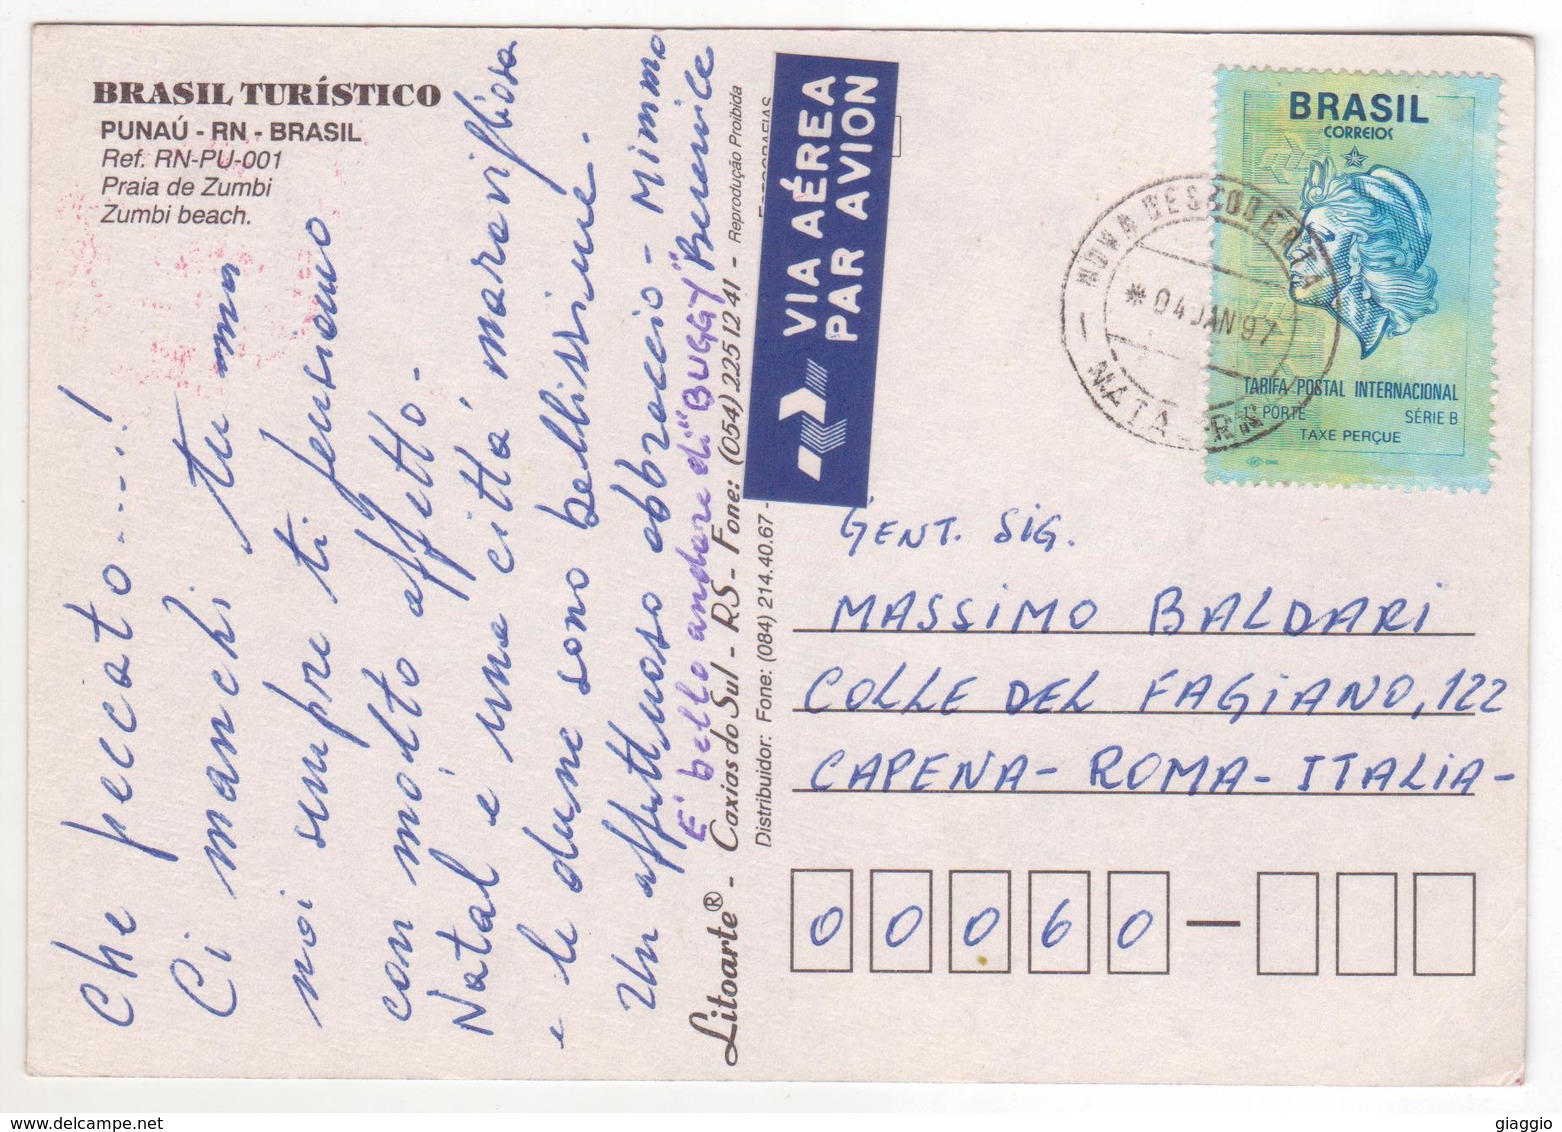 BRASIL TURÍSTICO
PUNAÚ - RN - BRASIL
Ref. RN-PU-001
Praia de Zumbi
Zumbi beach.
Che peccato....!
Ci manchi tu ma
noi sempre ti pensiamo
con molto affetto -
Natal è una città, maravigliosa
e le dune sono bellissime.
Un affettuoso abbraccio - Mimmo
E' bello andare di "BUGGY" Berenice
Litoarte® - Caxias do Sul - RS - Fone: (054) 225 12 41 - Reprodução Proibida
Distribuidor: Fone: (084) 214.40.67 -
VIA AÉREA
PAR AVION
BRASIL
CORREIOS
TARIFA POSTAL INTERNACIONAL
1º PORTE SÉRIE B
TAXE PERÇUE
NOVA DESCOBERTA
* 04 JAN 97
NATAL-RN
GENT. SIG.
MASSIMO BALDARI
COLLE DEL FAGIANO, 122
CAPENA - ROMA - ITALIA -
0 0 0 6 0 -
https://www.delcampe.net
giaggio